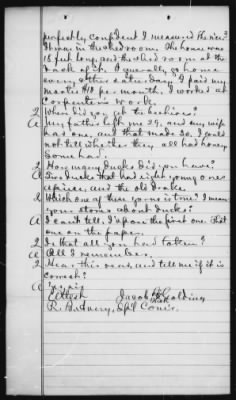 perfectly confident I measured the rice?
It was in the shed room. The house was
18 feet long, and the shed room at the
back of it. I generally at home
every other saturday? I paid my
master $10 per month. I worked at
Carpenter's work.
Q Where did you get the beehives?
A My father left me 29, and my wife
has one, and that made 30. I could
not tell whether they all had honey.
Some had.
Q How many ducks did you have?
A Two ducks that had eight young ones
apiece, and the old drake.
Q Which one of these yarns is true? I mean
your stories about ducks?
A I can't tell, I'spose the first one. That
one on the paper.
Q Is that all you had taken?
A All I remember.
Q Hear this read, and tell me if it is
correct?
A Yes, sir,
Attest Jacob his Golding
mark
R. B. Avery, Sp'l Com'r.